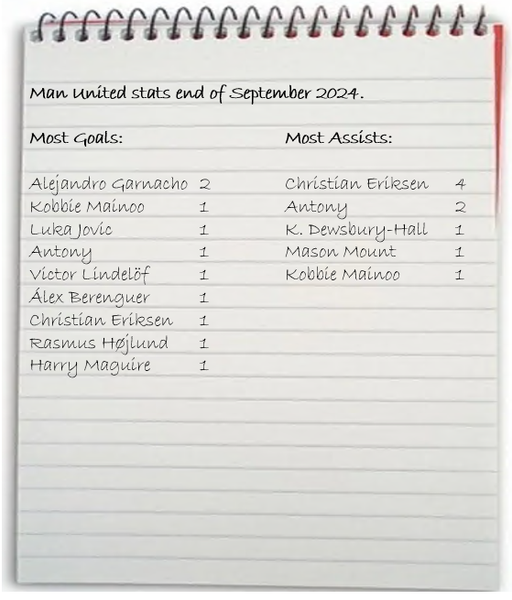 Man United stats end of September 2024.
Most Goals: Most Assists:
Alejandro Garnacho 2 Christian Eriksen 4
Kobbie Mainoo 1 Antony 2
Luka Jovic 1 K. Dewsbury-Hall 1
Antony 1 Mason Mount 1
Victor Lindelöf 1 Kobbie Mainoo 1
Álex Berenguer 1
Christian Eriksen 1
Rasmus Højlund 1
Harry Maguire 1